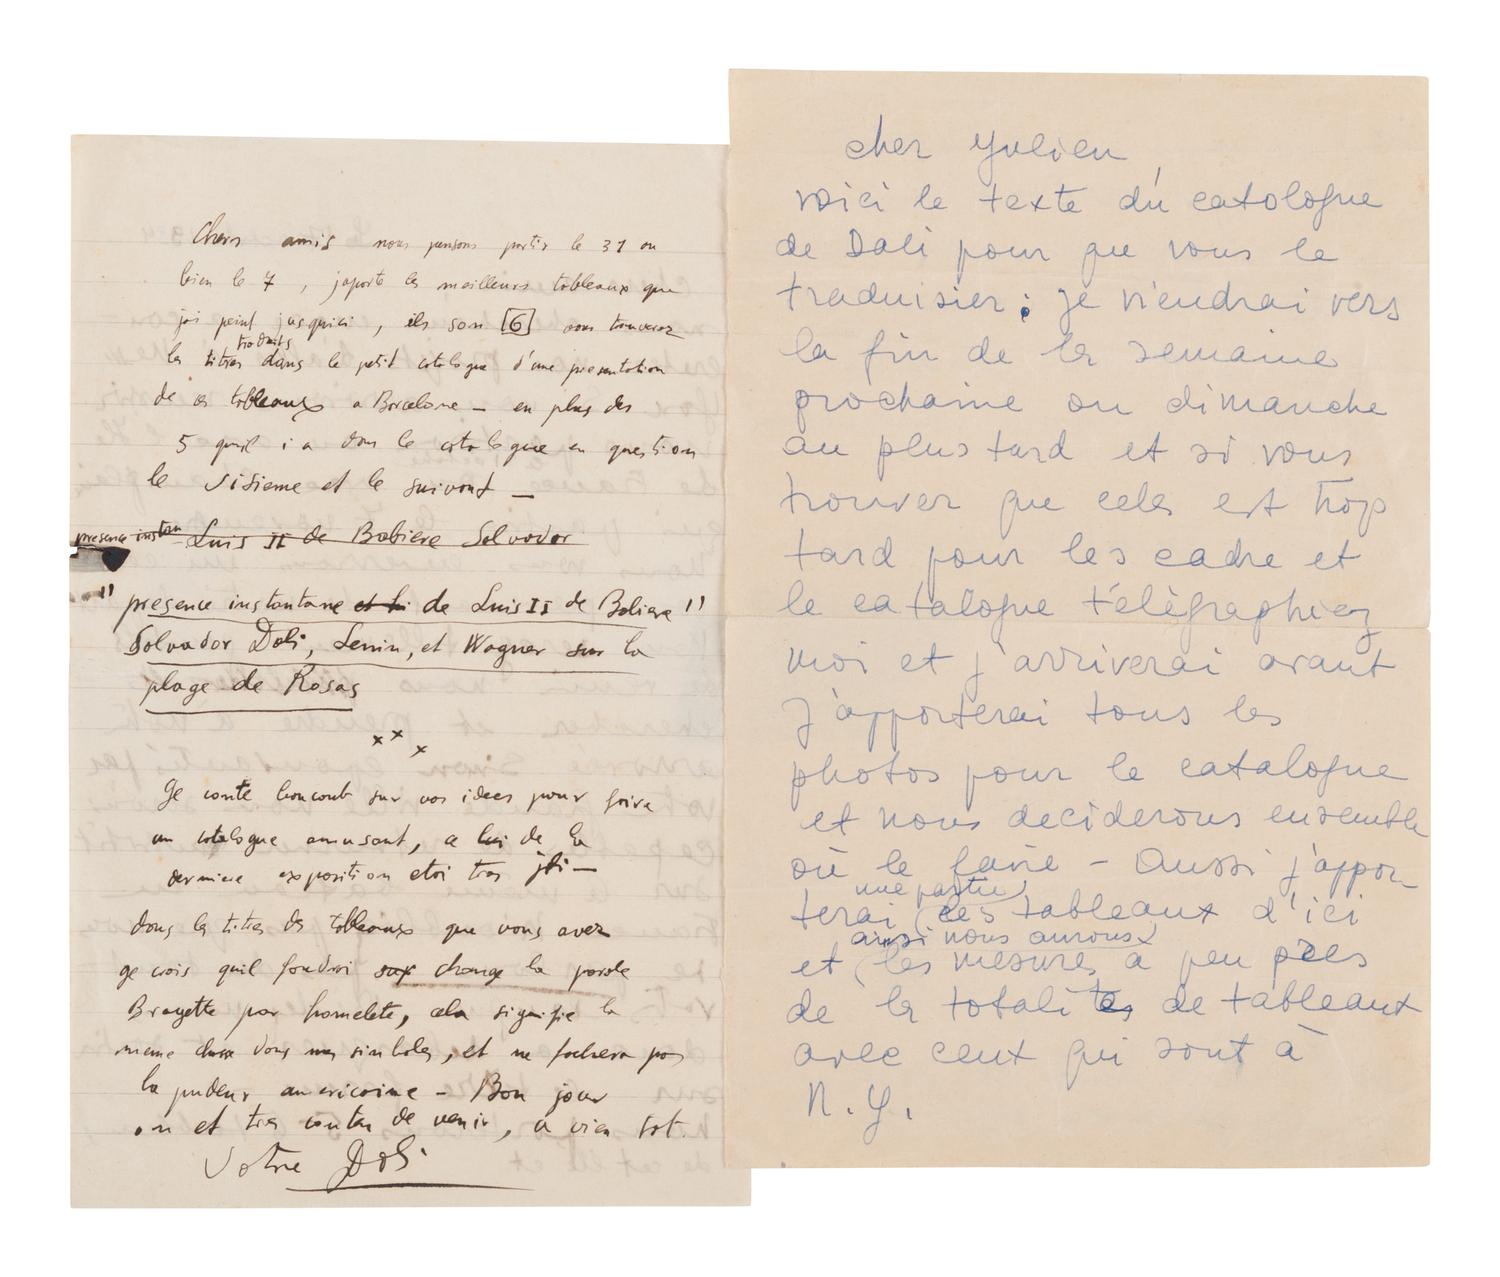 Chers amis nous pensons partir le 31 ou
bien le 7 , japorte les meilleurs tableaux que
jai peint jusquici , ils son [6] vous trouverez
traduits
les titres dans le petit catalogue d'une presentation
de ces tableaux a Barcelone — en plus des
5 quil i a dans le catalogue en question
le sisieme et le suivant —
presence instan Luis II de Babiere Salvador
" presence instantane et lui de Luis II de Babiere "
Salvador Dali, Lenin, et Wagner sur la
plage de Rosas
x x x
Ge conte boucoub sur vos idees pour faire
un catalogue amusant, a lui de la
derniere exposition etai tres joli —
dans les titres des tableaux que vous avez
ge crois quil foudrai change la parole
Brayette par homelete, cela signifie la
meme chose dans mes simboles, et ne fachera pas
la pudeur americaine — Bon jour
on et tres conten de venir, a vien tot.
Votre Dali
cher Yulien ,
voici le texte du catologue
de Dali pour que vous le
traduisier : je viendrai vers
la fin de la semaine
prochaine ou dimanche
au plus tard et si vous
trouver que cela est trop
tard pour les cadre et
le catalogue télégraphiez
moi et j'arriverai avant
J'apporterai tous les
photos pour le catalogue
et nous deciderons ensemble
où le faire – Aussi j'appor-
une partie
terai (des tableaux d'ici
ainsi nous aurons
et (les mesures à peu près
de la totalités de tableaux
avec ceux qui sont à
N.Y.